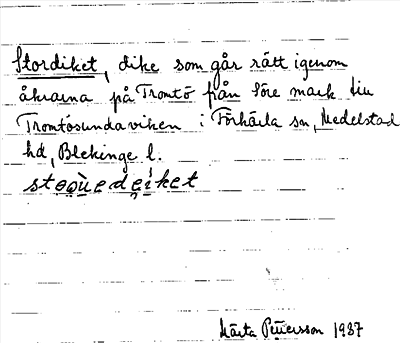 Stordiket, dike som går rätt igenom
åkrarna på Tromtö från Före mark till
Tromtösundaviken i Förkärla sn, Medelstad
hd, Blekinge l.
Märta Petersson 1937